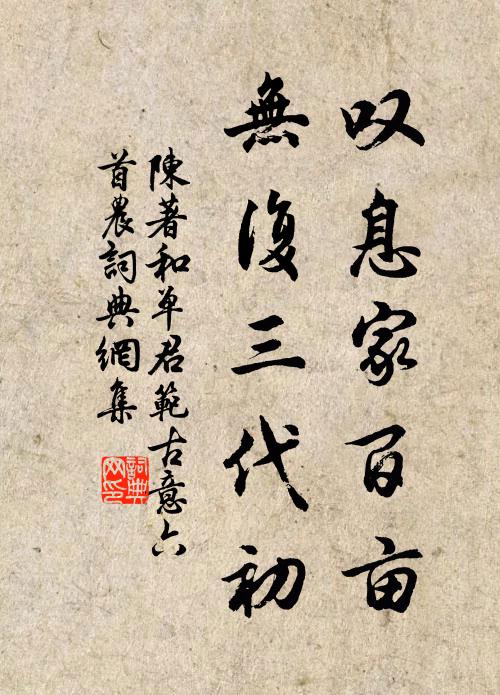 叹息家百亩
無復三代初
陳著和單君範古意六
首農詞典網集
詞典
网印